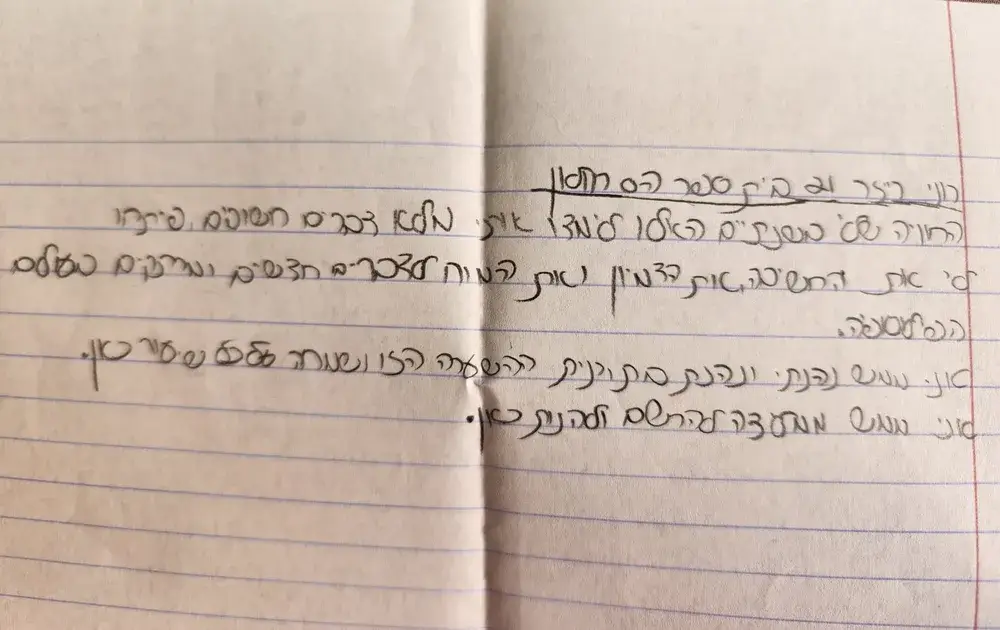 רוני ריצר וב בית ספר הס
החוויה שלי משנתיים האלו לימדו אותי מלא דברים חשובים, פיתחו
לי את החשיבה, את הדמיון ואת המוח לדברים חדשים ומרתקים בעולם
הפילוסופיה.
אני ממש נהנתי ונהנת מתוכנית ההעשרה הזו ושמחה על כל שיעור כאן.
אני ממש ממליצה להרשם ולהנות כאן.